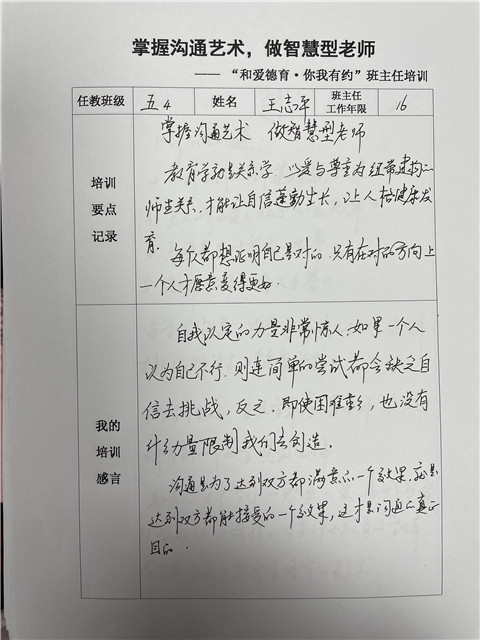 掌握沟通艺术，做智慧型老师
—— “和爱德育·你我有约”班主任培训
任教班级 五4 姓名 王志平 班主任工作年限 16
培训要点记录
掌握沟通艺术 做智慧型老师
教育学就是关系学，以爱与尊重为纽带建构
师生关系，才能让自信蓬勃生长，让人格健康发
育。
每个人都想证明自己是对的，只有在对的方向上
一个人才愿意变得更好。
我的培训感言
自我认定的力量非常惊人，如果一个人
认为自己不行，则连简单的尝试都会缺乏自
信去挑战，反之，即使困难重重，也没有
什么力量限制我们去创造。
沟通是为了达到双方都满意的一个效果，就是
达到双方都能接受的一个效果，这才是沟通的真正
目的。